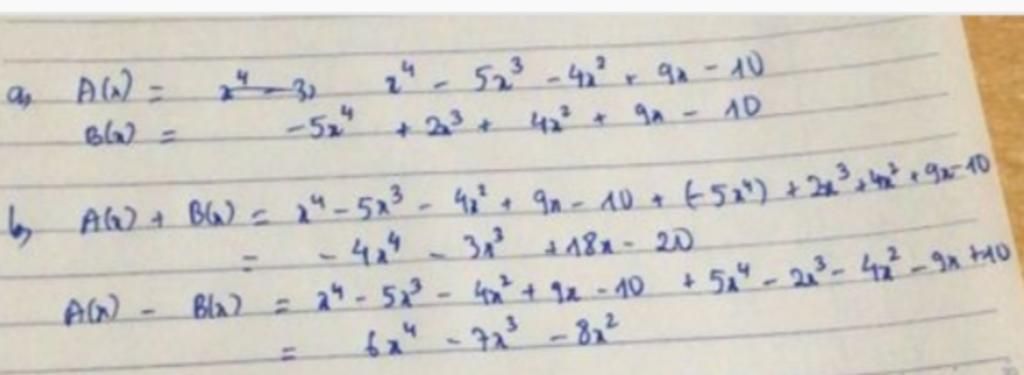 a, A(x) = x⁴ - 5x³ - 4x² + 9x - 10
B(x) = -5x⁴ + 2x³ + 4x² + 9x - 10
b, A(x) + B(x) = x⁴ - 5x³ - 4x² + 9x - 10 + (-5x⁴) + 2x³ + 4x² + 9x - 10
= - 4x⁴ - 3x³ + 18x - 20
A(x) - B(x) = x⁴ - 5x³ - 4x² + 9x - 10 + 5x⁴ - 2x³ - 4x² - 9x + 10
= 6x⁴ - 7x³ - 8x²